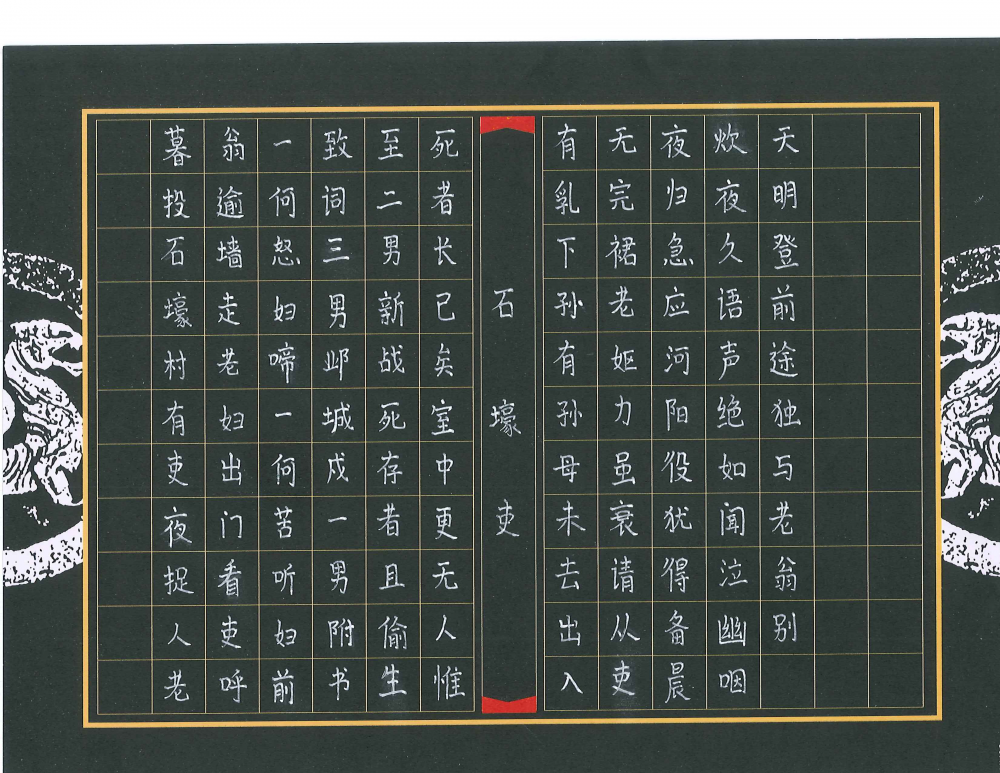 暮投石壕村有吏夜捉人老
翁逾墙走老妇出门看吏呼
一何怒妇啼一何苦听妇前
致词三男邺城戍一男附书
至二男新战死存者且偷生
死者长已矣室中更无人惟
石壕吏
有乳下孙有孙母未去出入
无完裙老妪力虽衰请从吏
夜归急应河阳役犹得备晨
炊夜久语声绝如闻泣幽咽
天明登前途独与老翁别